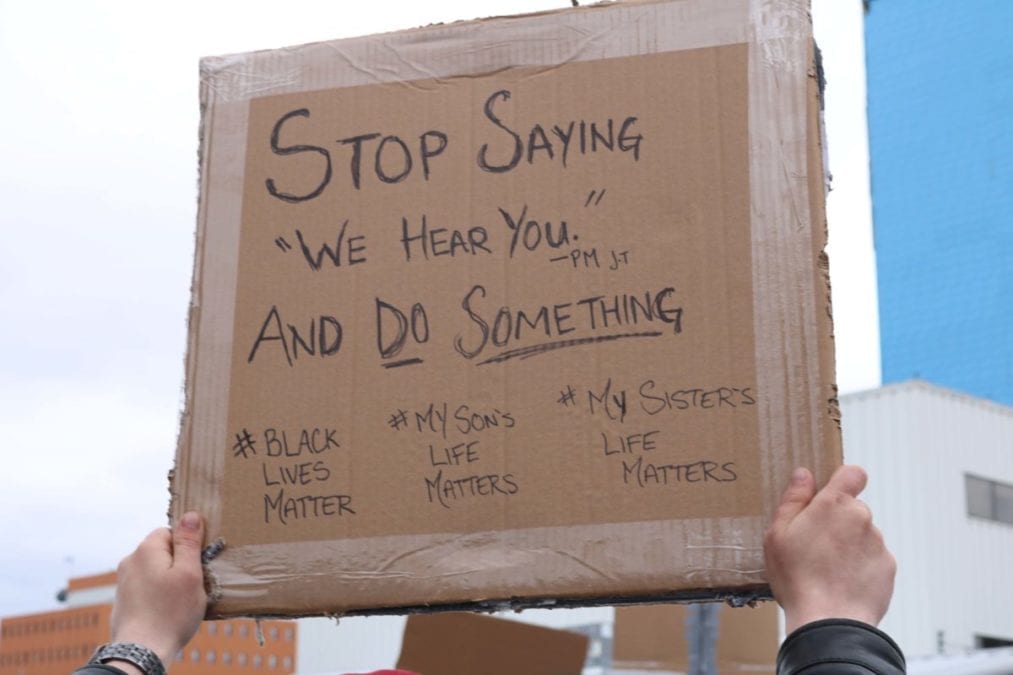 STOP SAYING
"WE HEAR YOU."
-PM J.T
AND DO SOMETHING
#BLACK
LIVES
MATTER
#MY SON'S
LIFE
MATTERS
#MY SISTER'S
LIFE
MATTERS